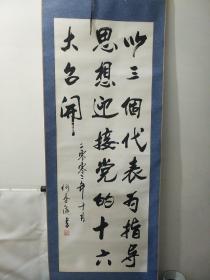 以三個代表为指导
思想迎接党的十六
大召開
二零零二年十月